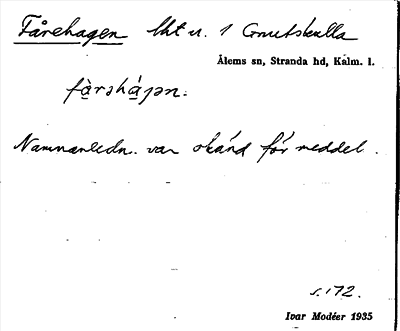 Fårehagen lht u. 1 Crnutskulla
Ålems sn, Stranda hd, Kalm. l.
fàrəháɡən.
Namnanledn. var okänd för meddel.
s. 172.
Ivar Modéer 1935